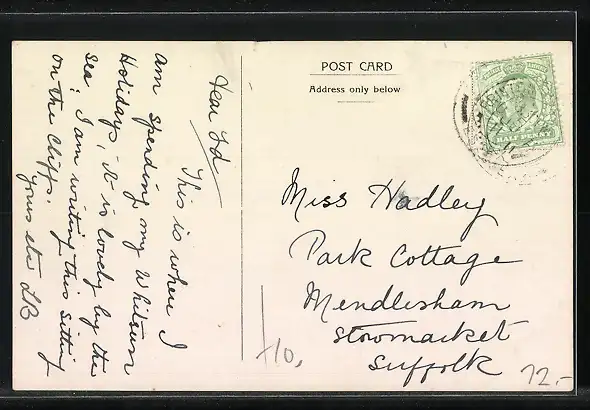 Dear Ed
This is where I
am spending my Whitsun
Holidays, it is lovely by the
sea. I am writing this sitting
on the Cliffs.
Yours etc LB
POST CARD
Address only below
Miss Hadley
Park Cottage
Mendlesham
Stowmarket
Suffolk
10.
12.-